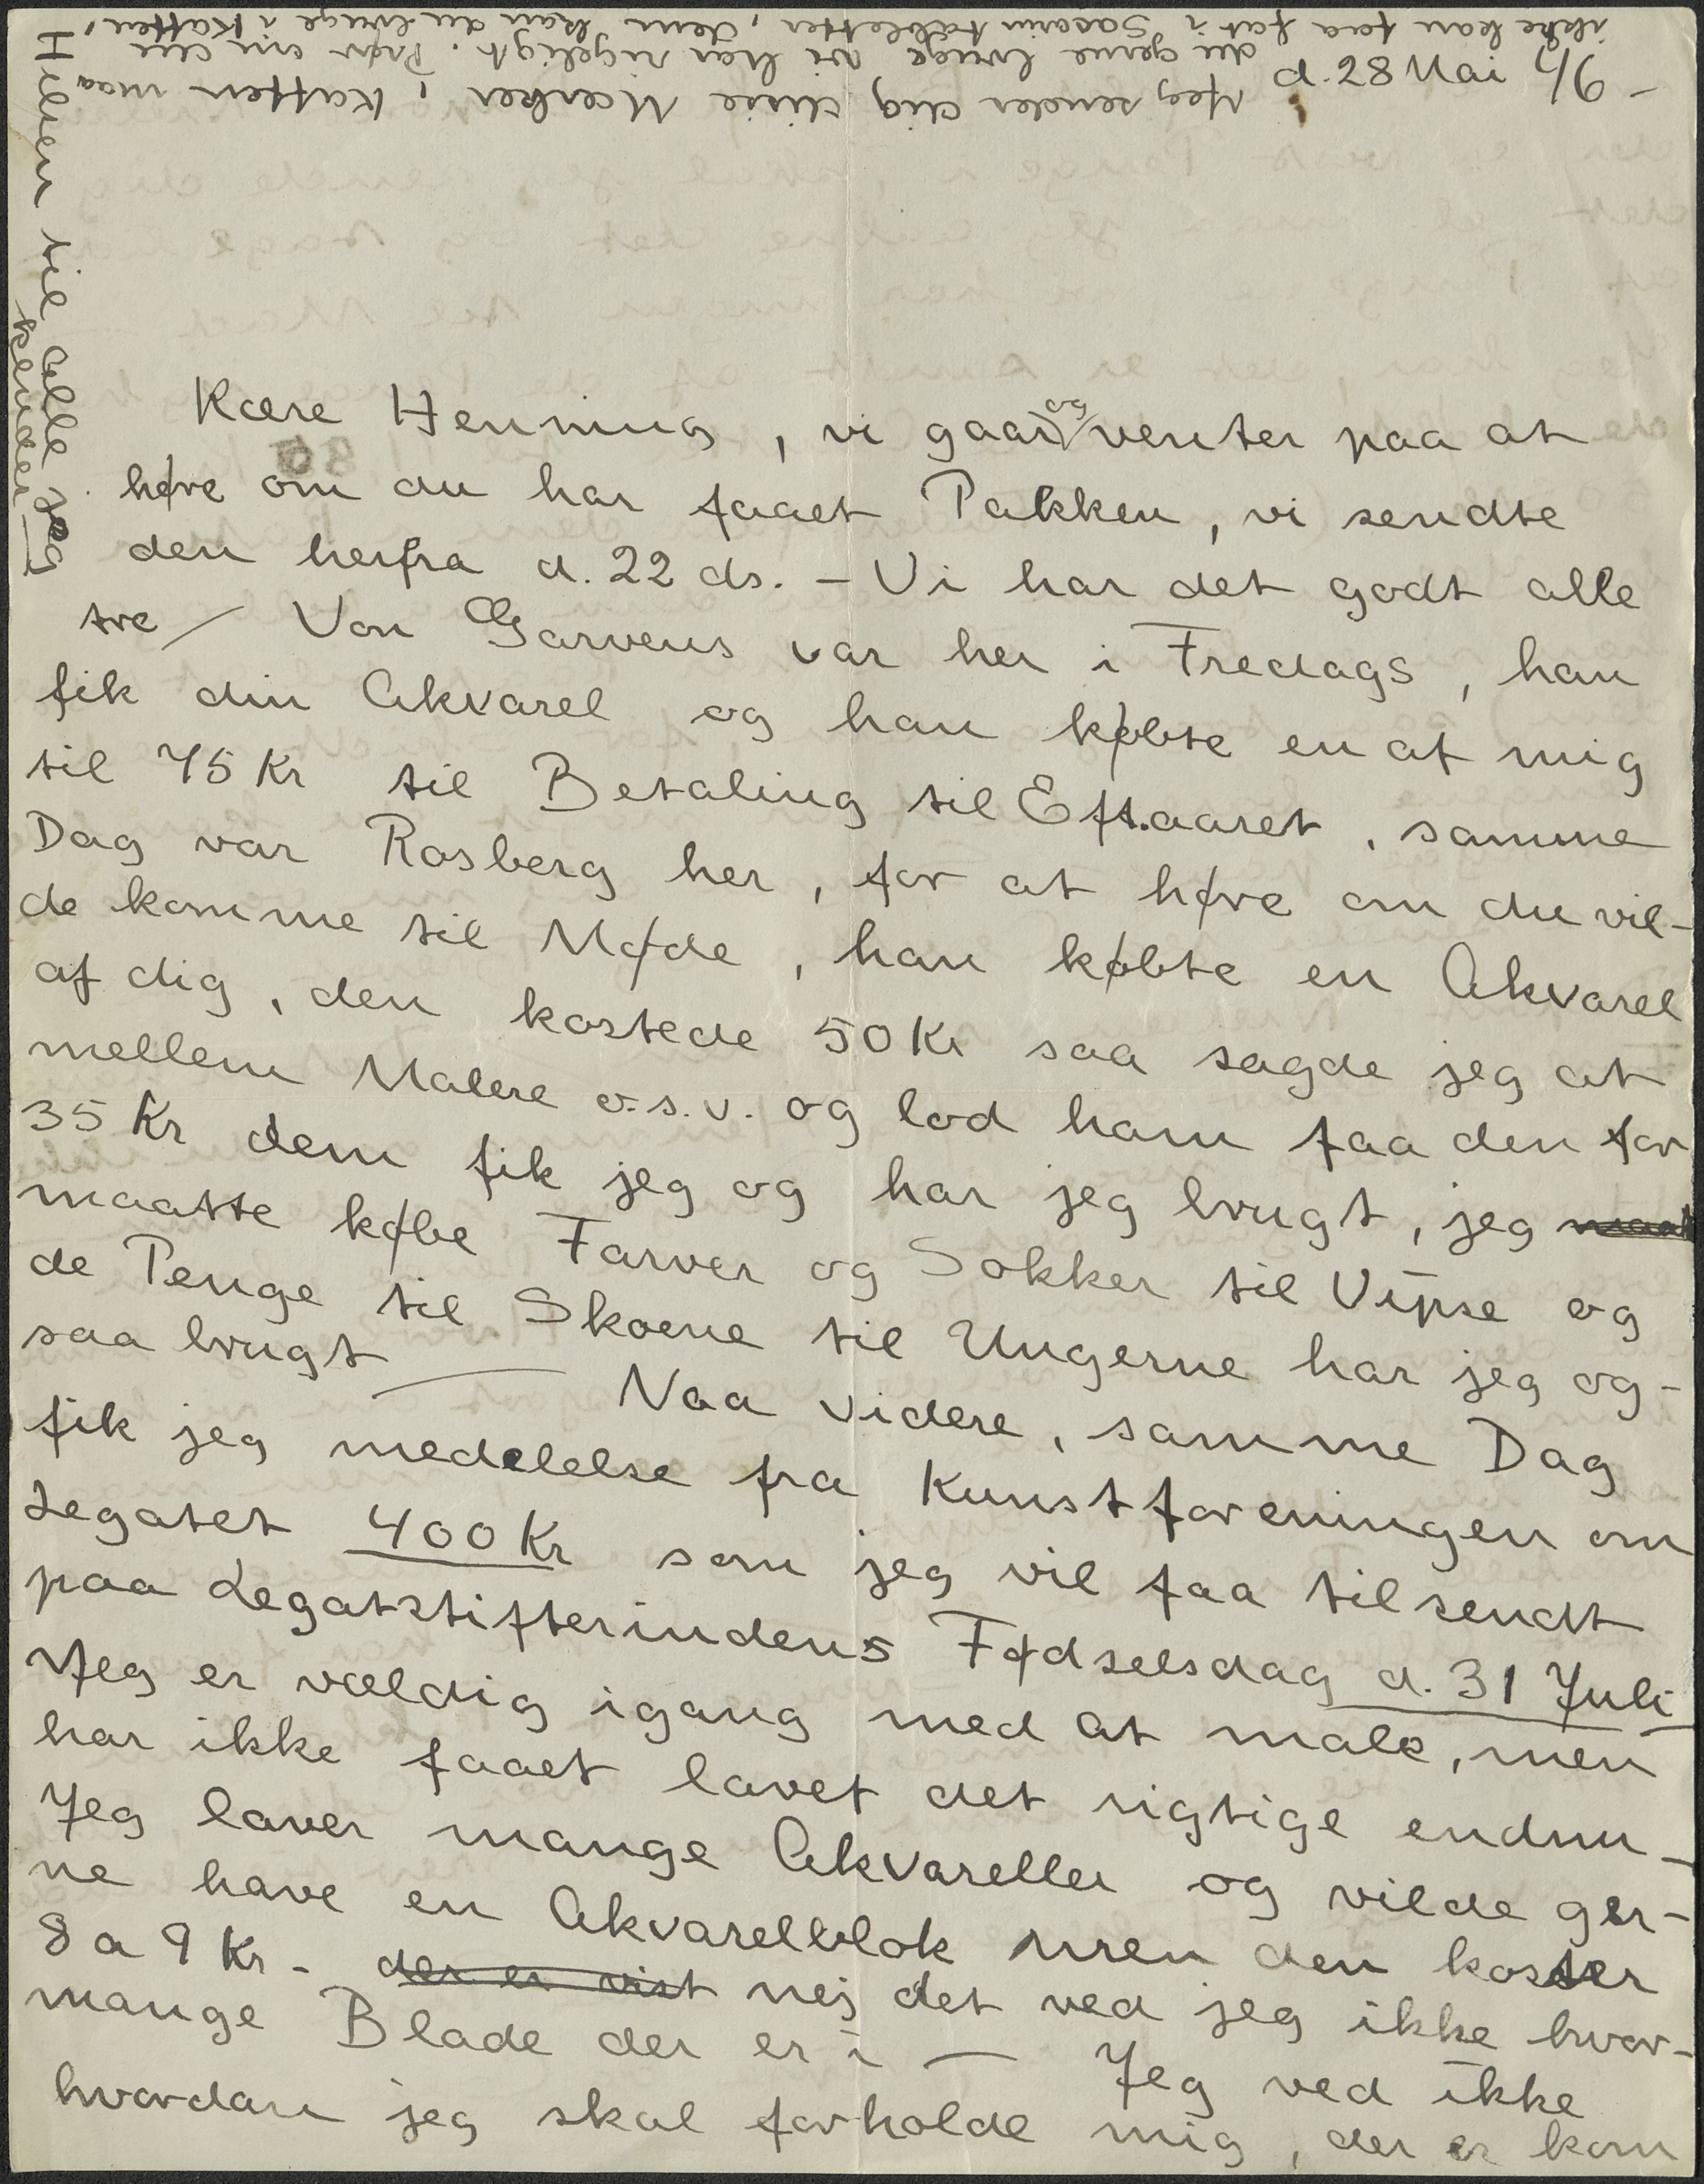 d. 28 Mai 46 -
Kære Henning, vi gaar og venter paa at
høre om du har faaet Pakken, vi sendte
den herfra d. 22 ds. - Vi har det godt alle
tre / Von Garvens var her i Fredags, han
fik din Akvarel og han købte en af mig
til 75 Kr til Betaling til Eft.aaret, samme
Dag var Rosberg her, for at høre om du vil-
de komme til Møde, han købte en Akvarel
af dig, den kostede 50 Kr saa sagde jeg at
mellem Malere o.s.v. og lod ham faa den for
35 Kr dem fik jeg og har jeg brugt, jeg maat
maatte købe Farver og Sokker til Vipse og
de Penge til Skoene til Ungerne har jeg og-
saa brugt — Naa videre, samme Dag
fik jeg medelelse fra Kunstforeningen om
Legatet 400 Kr som jeg vil faa tilsendt
paa Legatstifterindens Fødselsdag d. 31 Juli
Jeg er vældig igang med at male, men
har ikke faaet lavet det rigtige endnu -
Jeg laver mange Akvareller og vilde ger-
ne have en Akvarelblok men den koster
8 a 9 Kr - der er vist nej det ved jeg ikke hvor-
mange Blade der er i — Jeg ved ikke
hvordan jeg skal forholde mig, der er kom
Jeg sender dig disse Mærker, Kaffen maa
du gerne bruge vi har rigeligt. Prøv om du
ikke kan faa fat i Sacarin tabletter, dem kan du bruge i Kaffen,
Hilsen til alle jeg
kender —